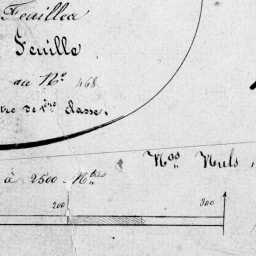 Feuilles
Feuille
au N° 468
tre de 1ère classe.
Nos Nuls,
à 2500 Mtres
200 300